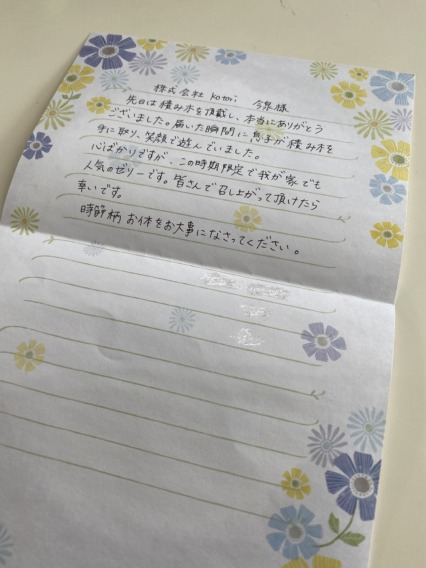 株式会社 kotori 今泉様
先日は積み木を頂戴し、本当にありがとう
ございました。届いた瞬間に息子が積み木を
手に取り、笑顔で遊んでいました。
心ばかりですが、この時期限定で我が家でも
人気のゼリーです。皆さんで召し上がって頂けたら
幸いです。
時節柄 お体をお大事になさってください。